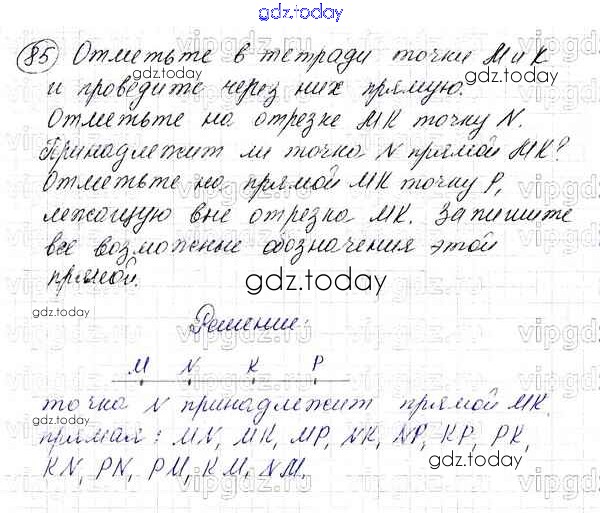 gdz.today
85 Отметьте в тетради точки M и K
gdz.today
gdz.today
и проведите через них прямую.
Отметьте на отрезке MK точку N.
Принадлежит ли точка N прямой MK?
Отметьте на прямой MK точку P,
лежащую вне отрезка MK. Запишите
все возможные обозначения этой
прямой.
gdz.today
Решение:
M N K P
точка N принадлежит прямой MK.
gdz.today
прямая: MN, MK, MP, NK, NP, KP, PK,
gdz.today
KN, PN, PM, KM, NM.
vipgdz